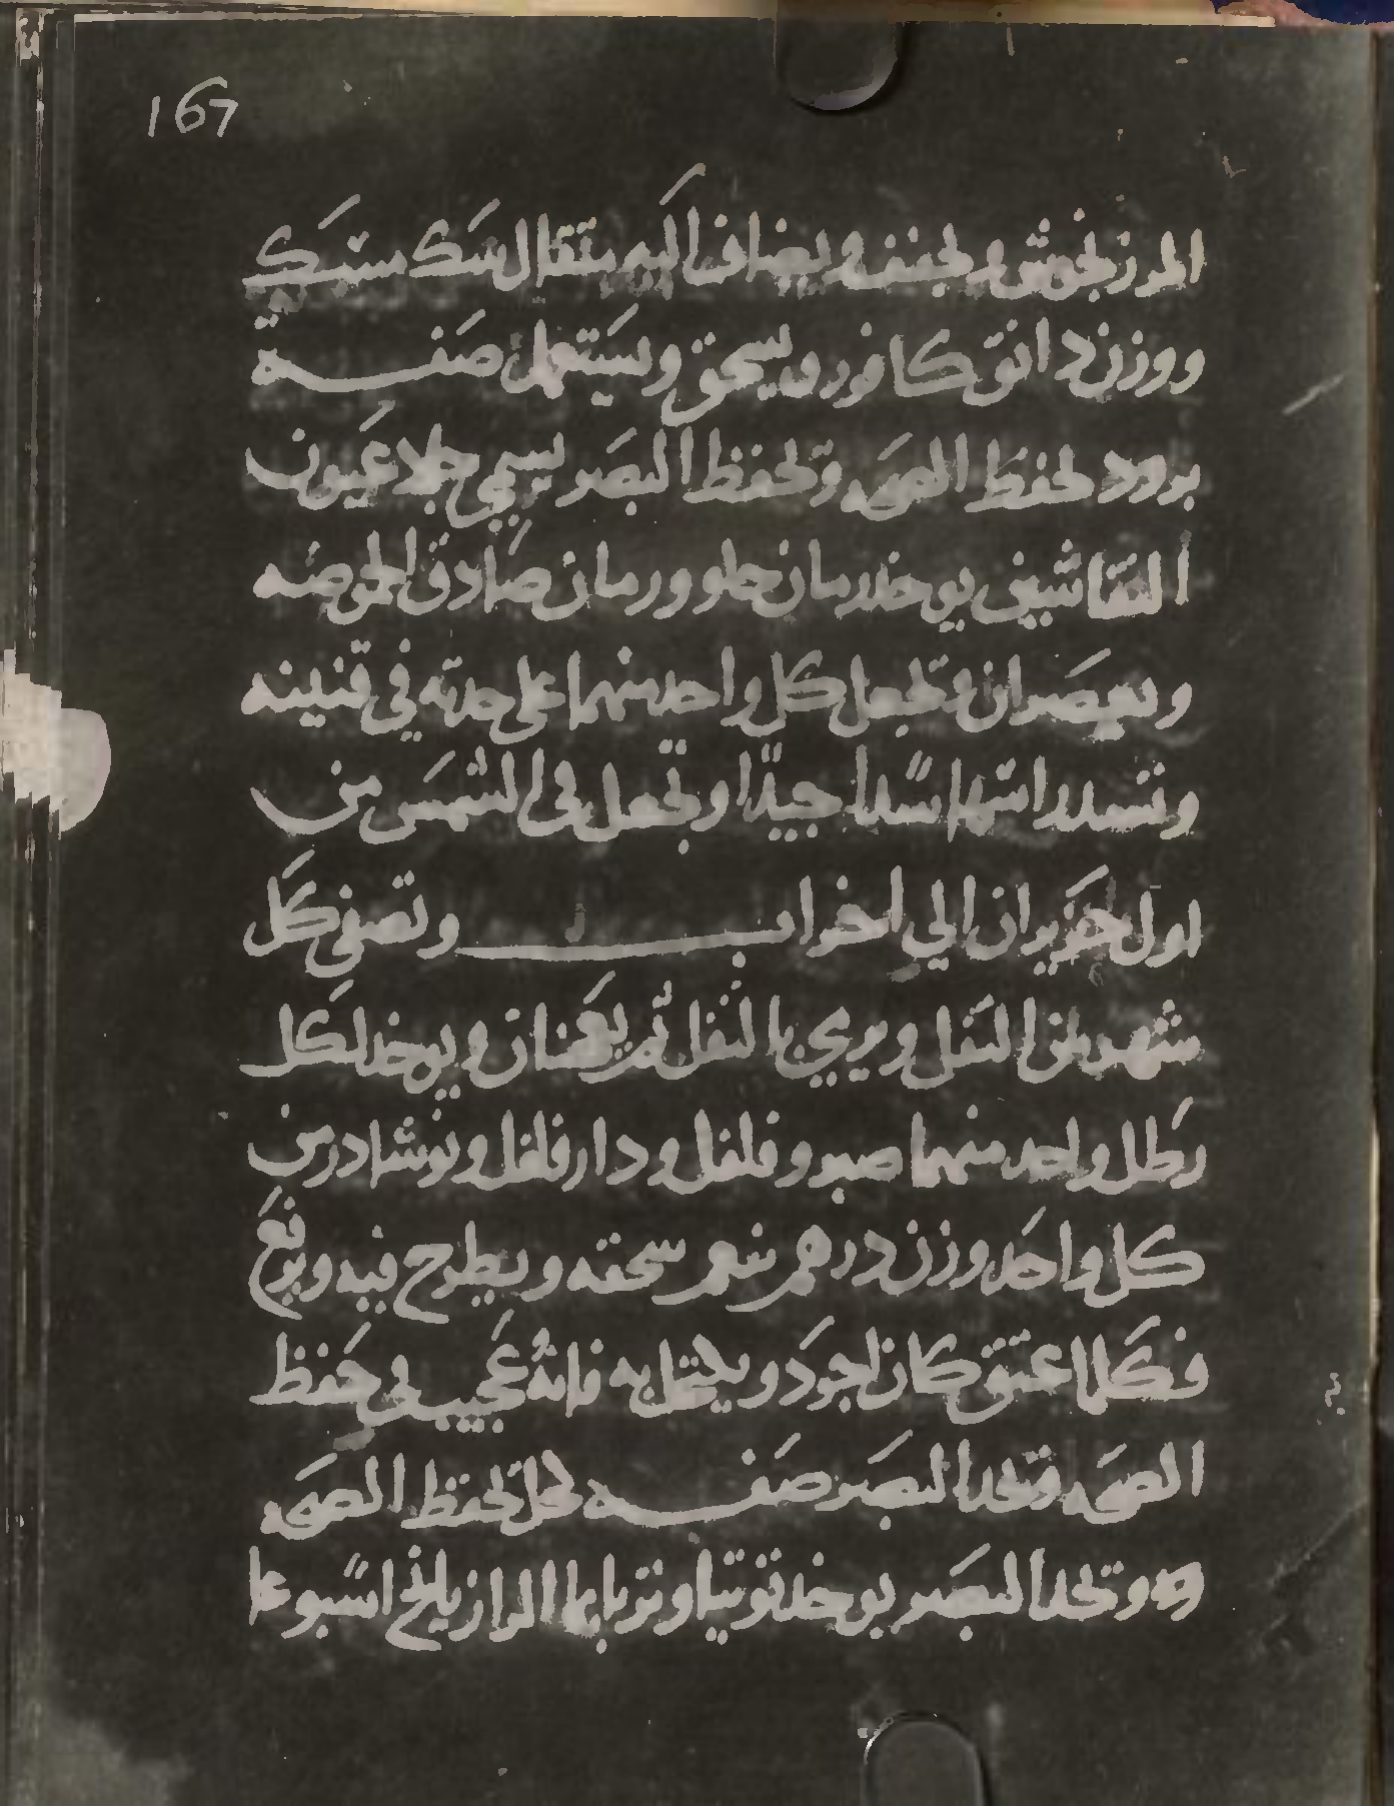 167
المرزنجوش ويجفف ويضاف اليه مثقال سك مسك
ووزن دانق كافور ويسحق ويستعمل صفـــة
برود لحفظ الصحه وتحفظ البصر يسمي جلا عيون
النقاشين يوخد رمان حلو ورمان صادق الحموضه
ويعصران وتجعل كل واحد منهما على حدته في قنينه
وتسد راسهما سدا جيدا وتجعل في الشمس من
اول حزيران الي اخر اب وتصفى كل
شهر من الثفل ويرمي بالثفل ثم يجمعان ويوخد لكل
رطل واحد منهما صبر وفلفل ودار فلفل ونوشادر من
كل واحد وزن درهم ينعم سحقه ويطرح فيه ويرفع
فكلما عتق كان اجود ويكتحل به فانه عجيب في حفظ
الصحه وتحد البصر صفـــه كحل تحفظ الصحه
وتحد البصر يوخد توتيا وتربا بما الرازيانج اسبوعا